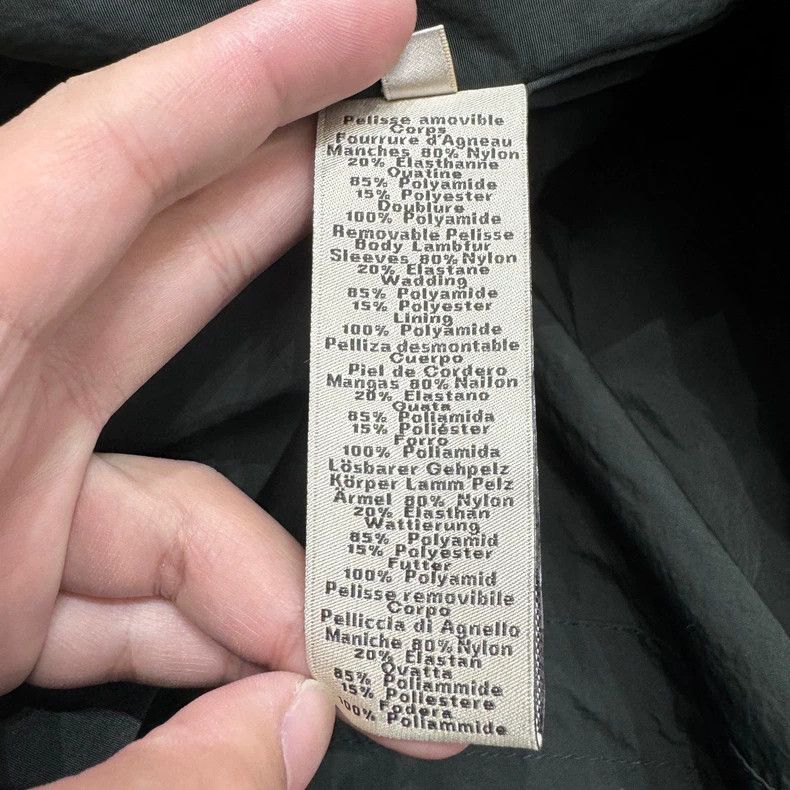 Pelisse amovible
Corps
Fourrure d'Agneau
Manches 80% Nylon
20% Elasthanne
Ouatine
85% Polyamide
15% Polyester
Doublure
100% Polyamide
Removable Pelisse
Body Lambfur
Sleeves 80% Nylon
20% Elastane
Wadding
85% Polyamide
15% Polyester
Lining
100% Polyamide
Pelliza desmontable
Cuerpo
Piel de Cordero
Mangas 80% Nailon
20% Elastano
Guata
85% Poliamida
15% Poliéster
Forro
100% Poliamida
Lösbarer Gehpelz
Körper Lamm Pelz
Ärmel 80% Nylon
20% Elasthan
Wattierung
85% Polyamid
15% Polyester
Futter
100% Polyamid
Pelisse removibile
Corpo
Pelliccia di Agnello
Maniche 80% Nylon
20% Elastan
Ovatta
85% Poliammide
15% Poliestere
Fodera
100% Poliammide